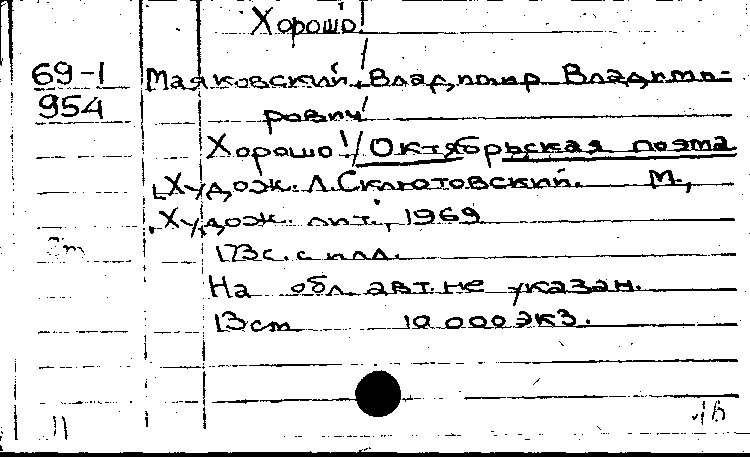 Хорошо!
69-1 Маяковский, Владимир Владими-
954 рович
Хорошо! / Октябрьская поэма
Худож. Л. Склютовский. М.,
Худож. лит., 1969
173 с. с илл.
На обл. авт. не указан.
13 см 10 000 экз.
11